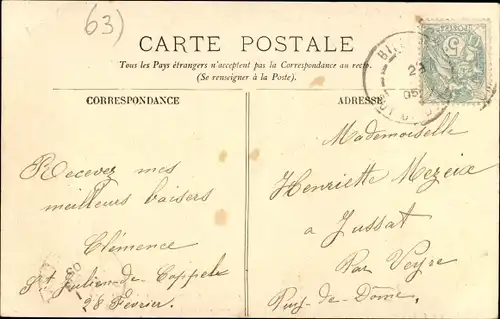 63)
CARTE POSTALE
Tous les Pays étrangers n'acceptent pas la Correspondance au recto.
(Se renseigner à la Poste).
CORRESPONDANCE
Recevez mes
meilleurs baisers
Clémence
St Julien-de-Coppel
28 Février.
ADRESSE
Mademoiselle
Henriette Mezeix
à Jussat
Par Veyre
Puy-de-Dôme,
POSTES
5
BI
05